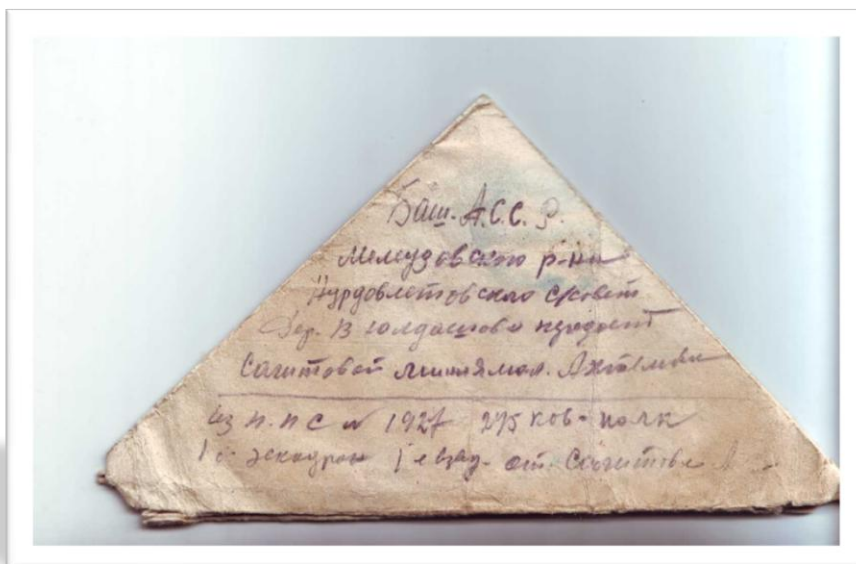 Баш. А.С.С.Р.
Мелеузовского р-на
Нурдовлетовского с/совет
Дер. В Юлдашово
Сагитовой
из п.п с № 1927 275 ков-полк
1 й эскадрон 1 е взд. от Сагитова